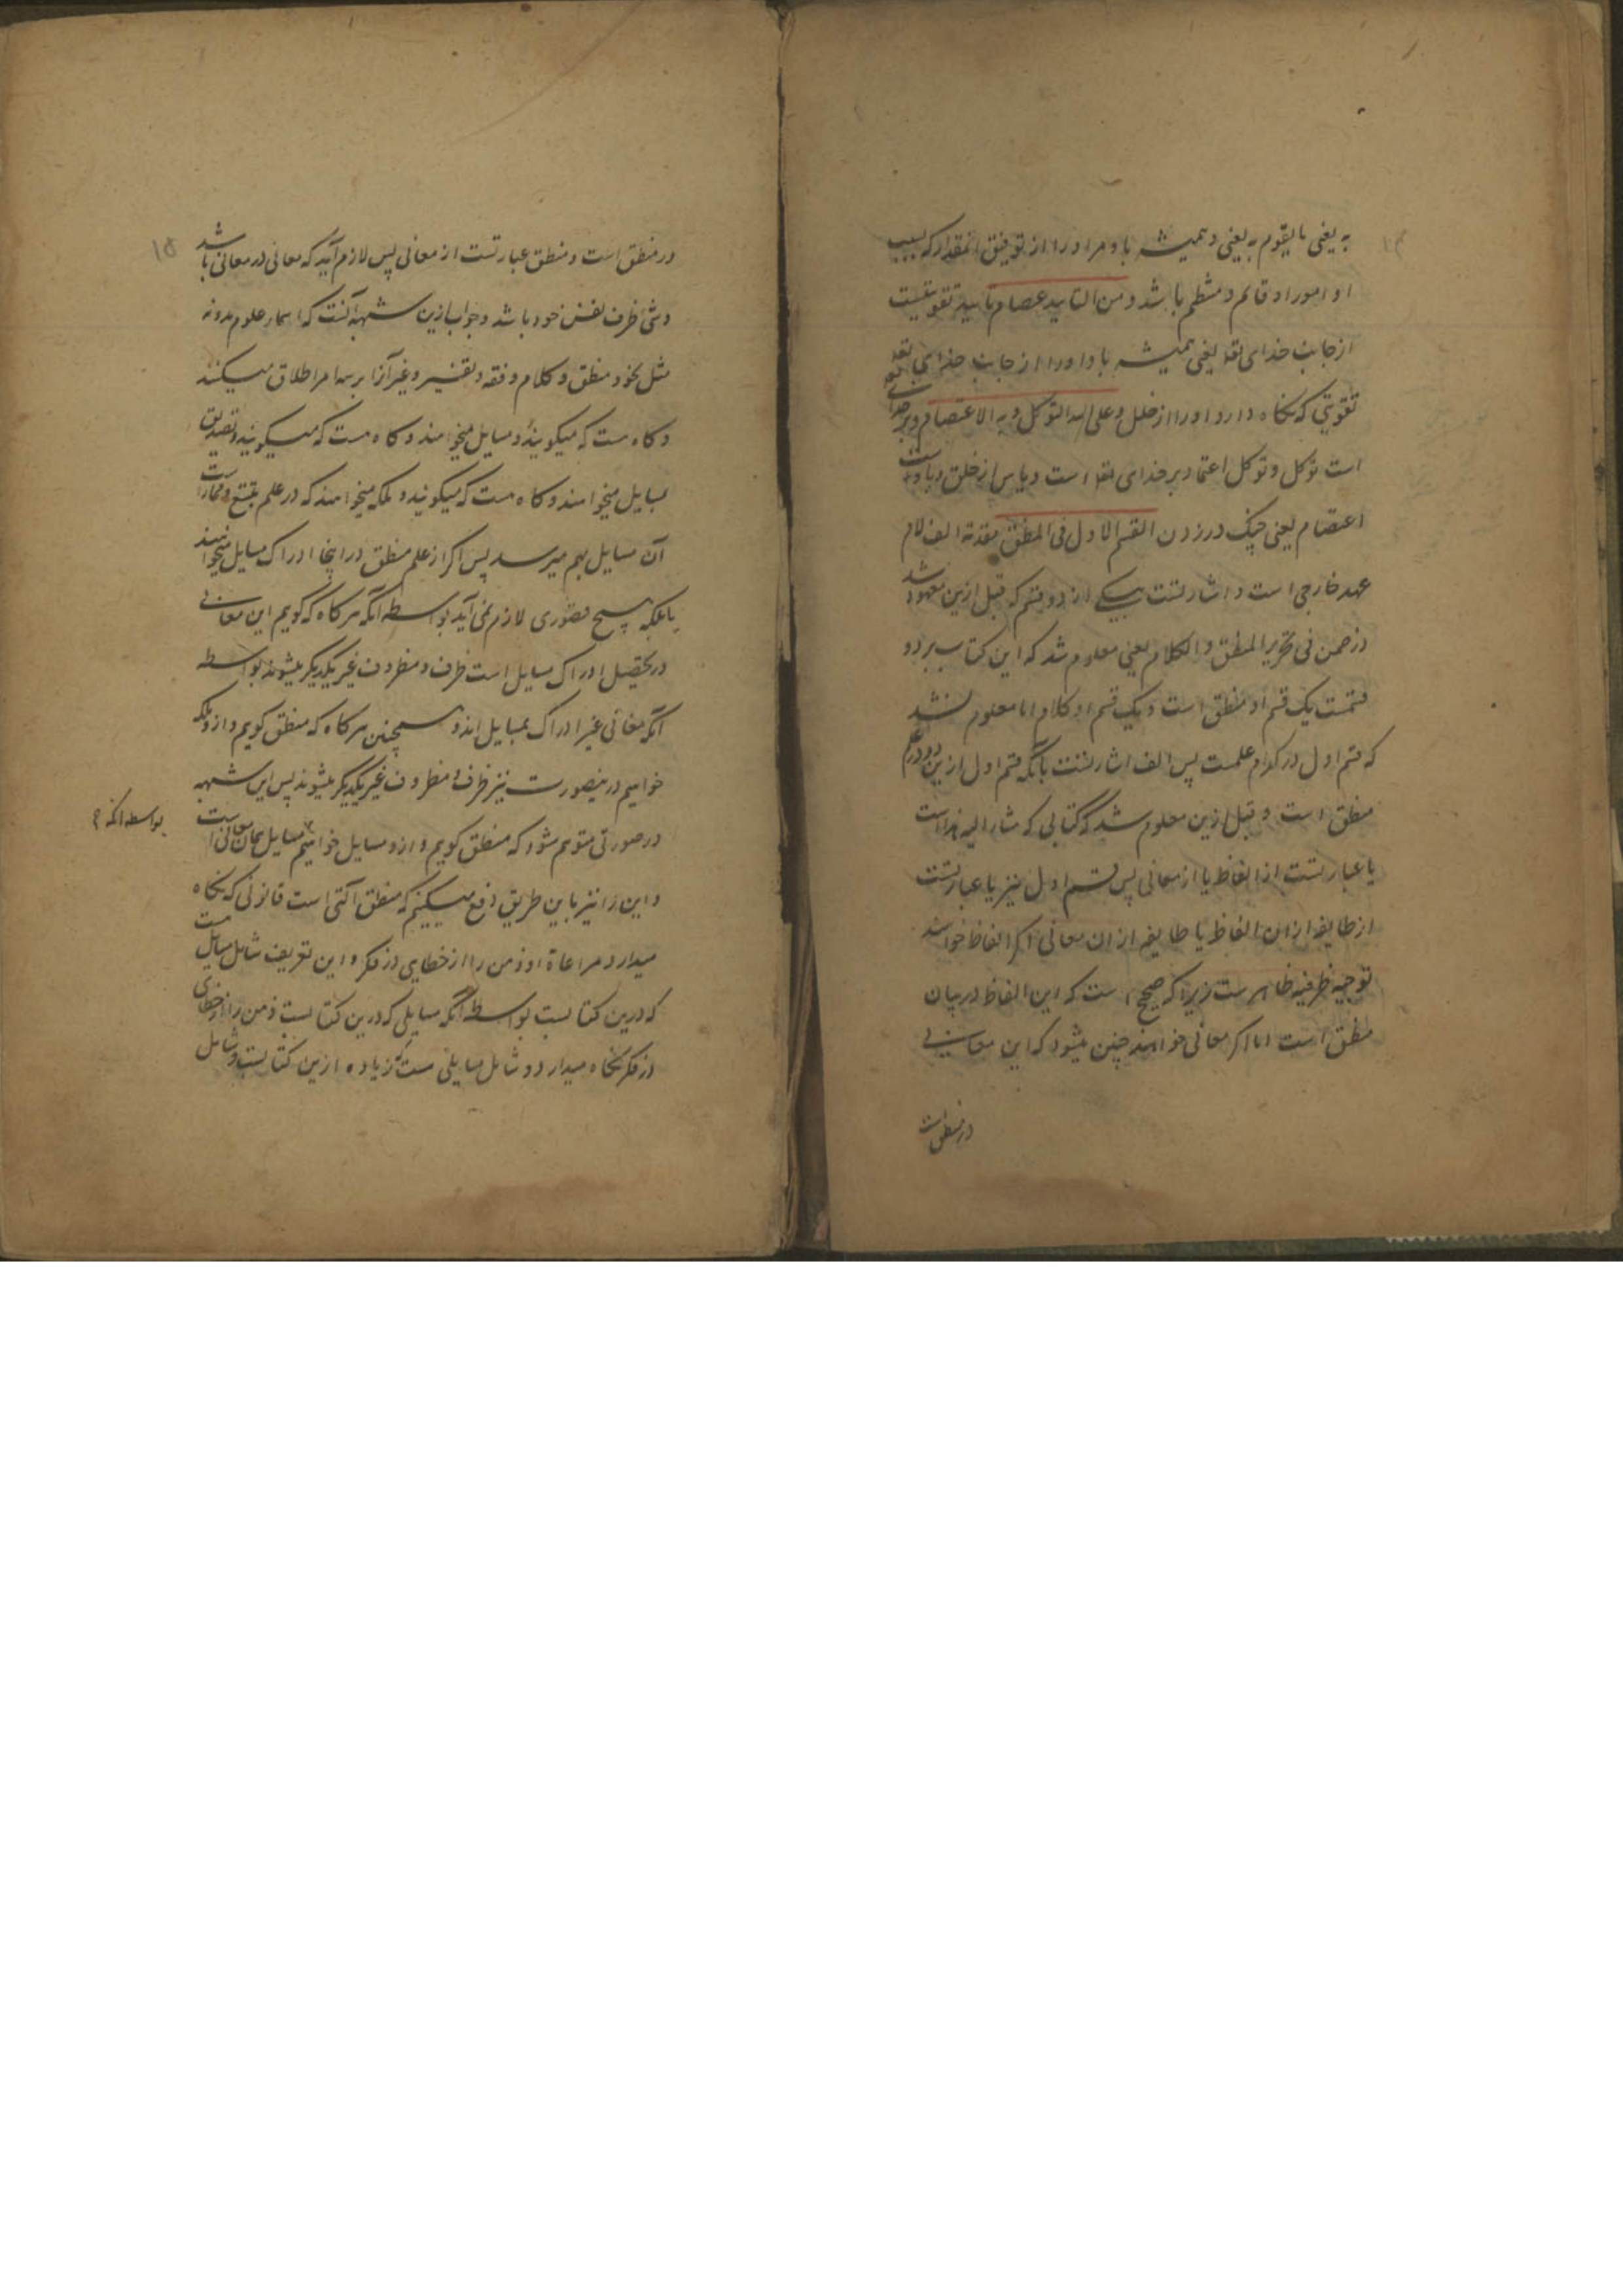 به یعنی ما یقوم به یعنی و همیشه باد مر او را از توفیق آنمقدار که بسبب
او امور او قائم و منتظم باشد و من التایید عصام تایید تقویتست
از جانب خدای تعالی یعنی همیشه باد او را از جانب خدای تعالی
تقویتی که نگاه دارد او را از خلل و علی الله التوکل و به الاعتصام و بر خدای
است توکل و توکل اعتماد بر خدای تعالی است و یاس از خلق و باوست
اعتصام یعنی چنگ در زدن القسم الاول فی المنطق مقدمة الف لام
عهد خارجی است و اشارتست بیکی از دو قسم که قبل ازین معهود شد
در ضمن فی تحریر المنطق و الکلام یعنی معلوم شد که این کتاب بر دو
قسمت یک قسم او منطق است و یک قسم او کلام اما معلوم نشد
که قسم اول در کدام علمست پس الف اشارتست بآنکه قسم اول ازین دو در علم
منطق است و قبل ازین معلوم شد که کتابی که مشار الیه هذا است
یا عبارتست از الفاظ یا از معانی پس قسم اول نیز یا عبارتست
از طایفه از ان الفاظ یا طایفه از ان معانی اگر الفاظ خواهند
توجیه ظرفیه ظاهرست زیرا که صحیح است که این الفاظ در بیان
منطق است اما اگر معانی خواهند چنین میشود که این معانی
در منطق است
۱۵
در منطق است و منطق عبارتست از معانی پس لازم آید که معانی در معانی باشد
و شی ظرف نفس خود باشد و جواب ازین شبهه آنست که اسماء علوم مدونه
مثل نحو و منطق و کلام و فقه و تفسیر و غیر آنرا بر سه امر اطلاق میکنند
و کاه هست که میکویند و مسایل میخواهند و کاه هست که میکویند و تصدیق
بمسایل میخواهند و کاه هست که میکویند و ملکه میخواهند که در علم بتتبع و ممارست
آن مسایل بهم میرسد پس اکر از علم منطق در اینجا ادراک مسایل میخواهند
یا ملکه هیچ قصوری لازم نمی آید بواسطه آنکه هر کاه که کویم این معانی
در تحصیل ادراک مسایل است ظرف و مظروف غیر یکدیکر میشوند بواسطه
آنکه معانی غیر ادراک بمسایل اند و همچنین هر کاه که منطق کویم و ازو ملکه
خواهیم درینصورت نیز ظرف و مظروف غیر یکدیکر میشوند پس این شبهه
در صورتی متوهم شود که منطق کویم و ازو مسایل خواهیم مسایل همان معانی است
بواسطه آنکه
و این را نیز باین طریق دفع میکنیم که منطق آلتی است قانونی که نکاه
میدارد مراعاة او ذهن را از خطای در فکر و این تعریف شامل مسایل هست
که درین کتابست بواسطه آنکه مسایلی که درین کتابست ذهن را از خطای
در فکر نکاه میدارد و شامل مسایلی هست که زیاده ازین کتابست و شامل